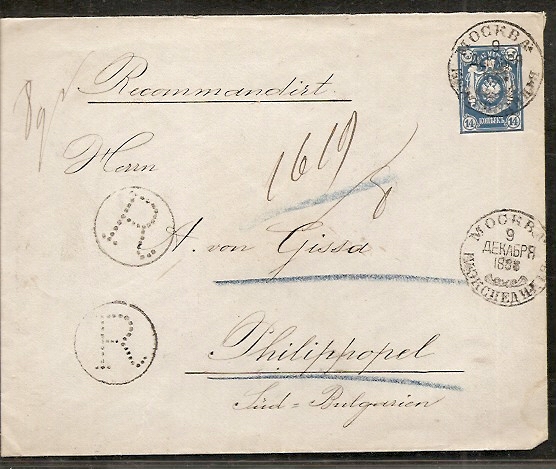 МОСКВА
9
14 КОПѢЕКЪ 14
Recommandirt.
1619
Herrn
R
A. von Gissa
МОСКВА
9
ДЕКАБРЯ
188
R
Philippopel
Süd=Bulgarien